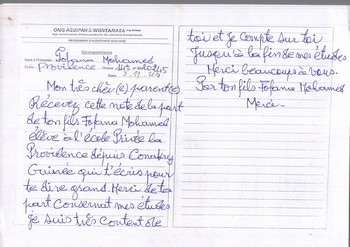 ONG AGUIPAH & WONTANARA
Correspondance
Fofana Mohamed
Providence
Mon très chèr (e) parent(e)
Recevez cette note de la part
de ton fils Fofana Mohamed
élève à l'école Privée la
Providence dépuis Conakry
Guinée qui t'écris pour
te dire grand. Merci de ta
part consernat mes études
je suis très content de
toi et je compte sur toi
Jusqu'à la fin de mes études
Merci beaucoups à vous.
Par ton fils Fofana Mohamed
Merci.